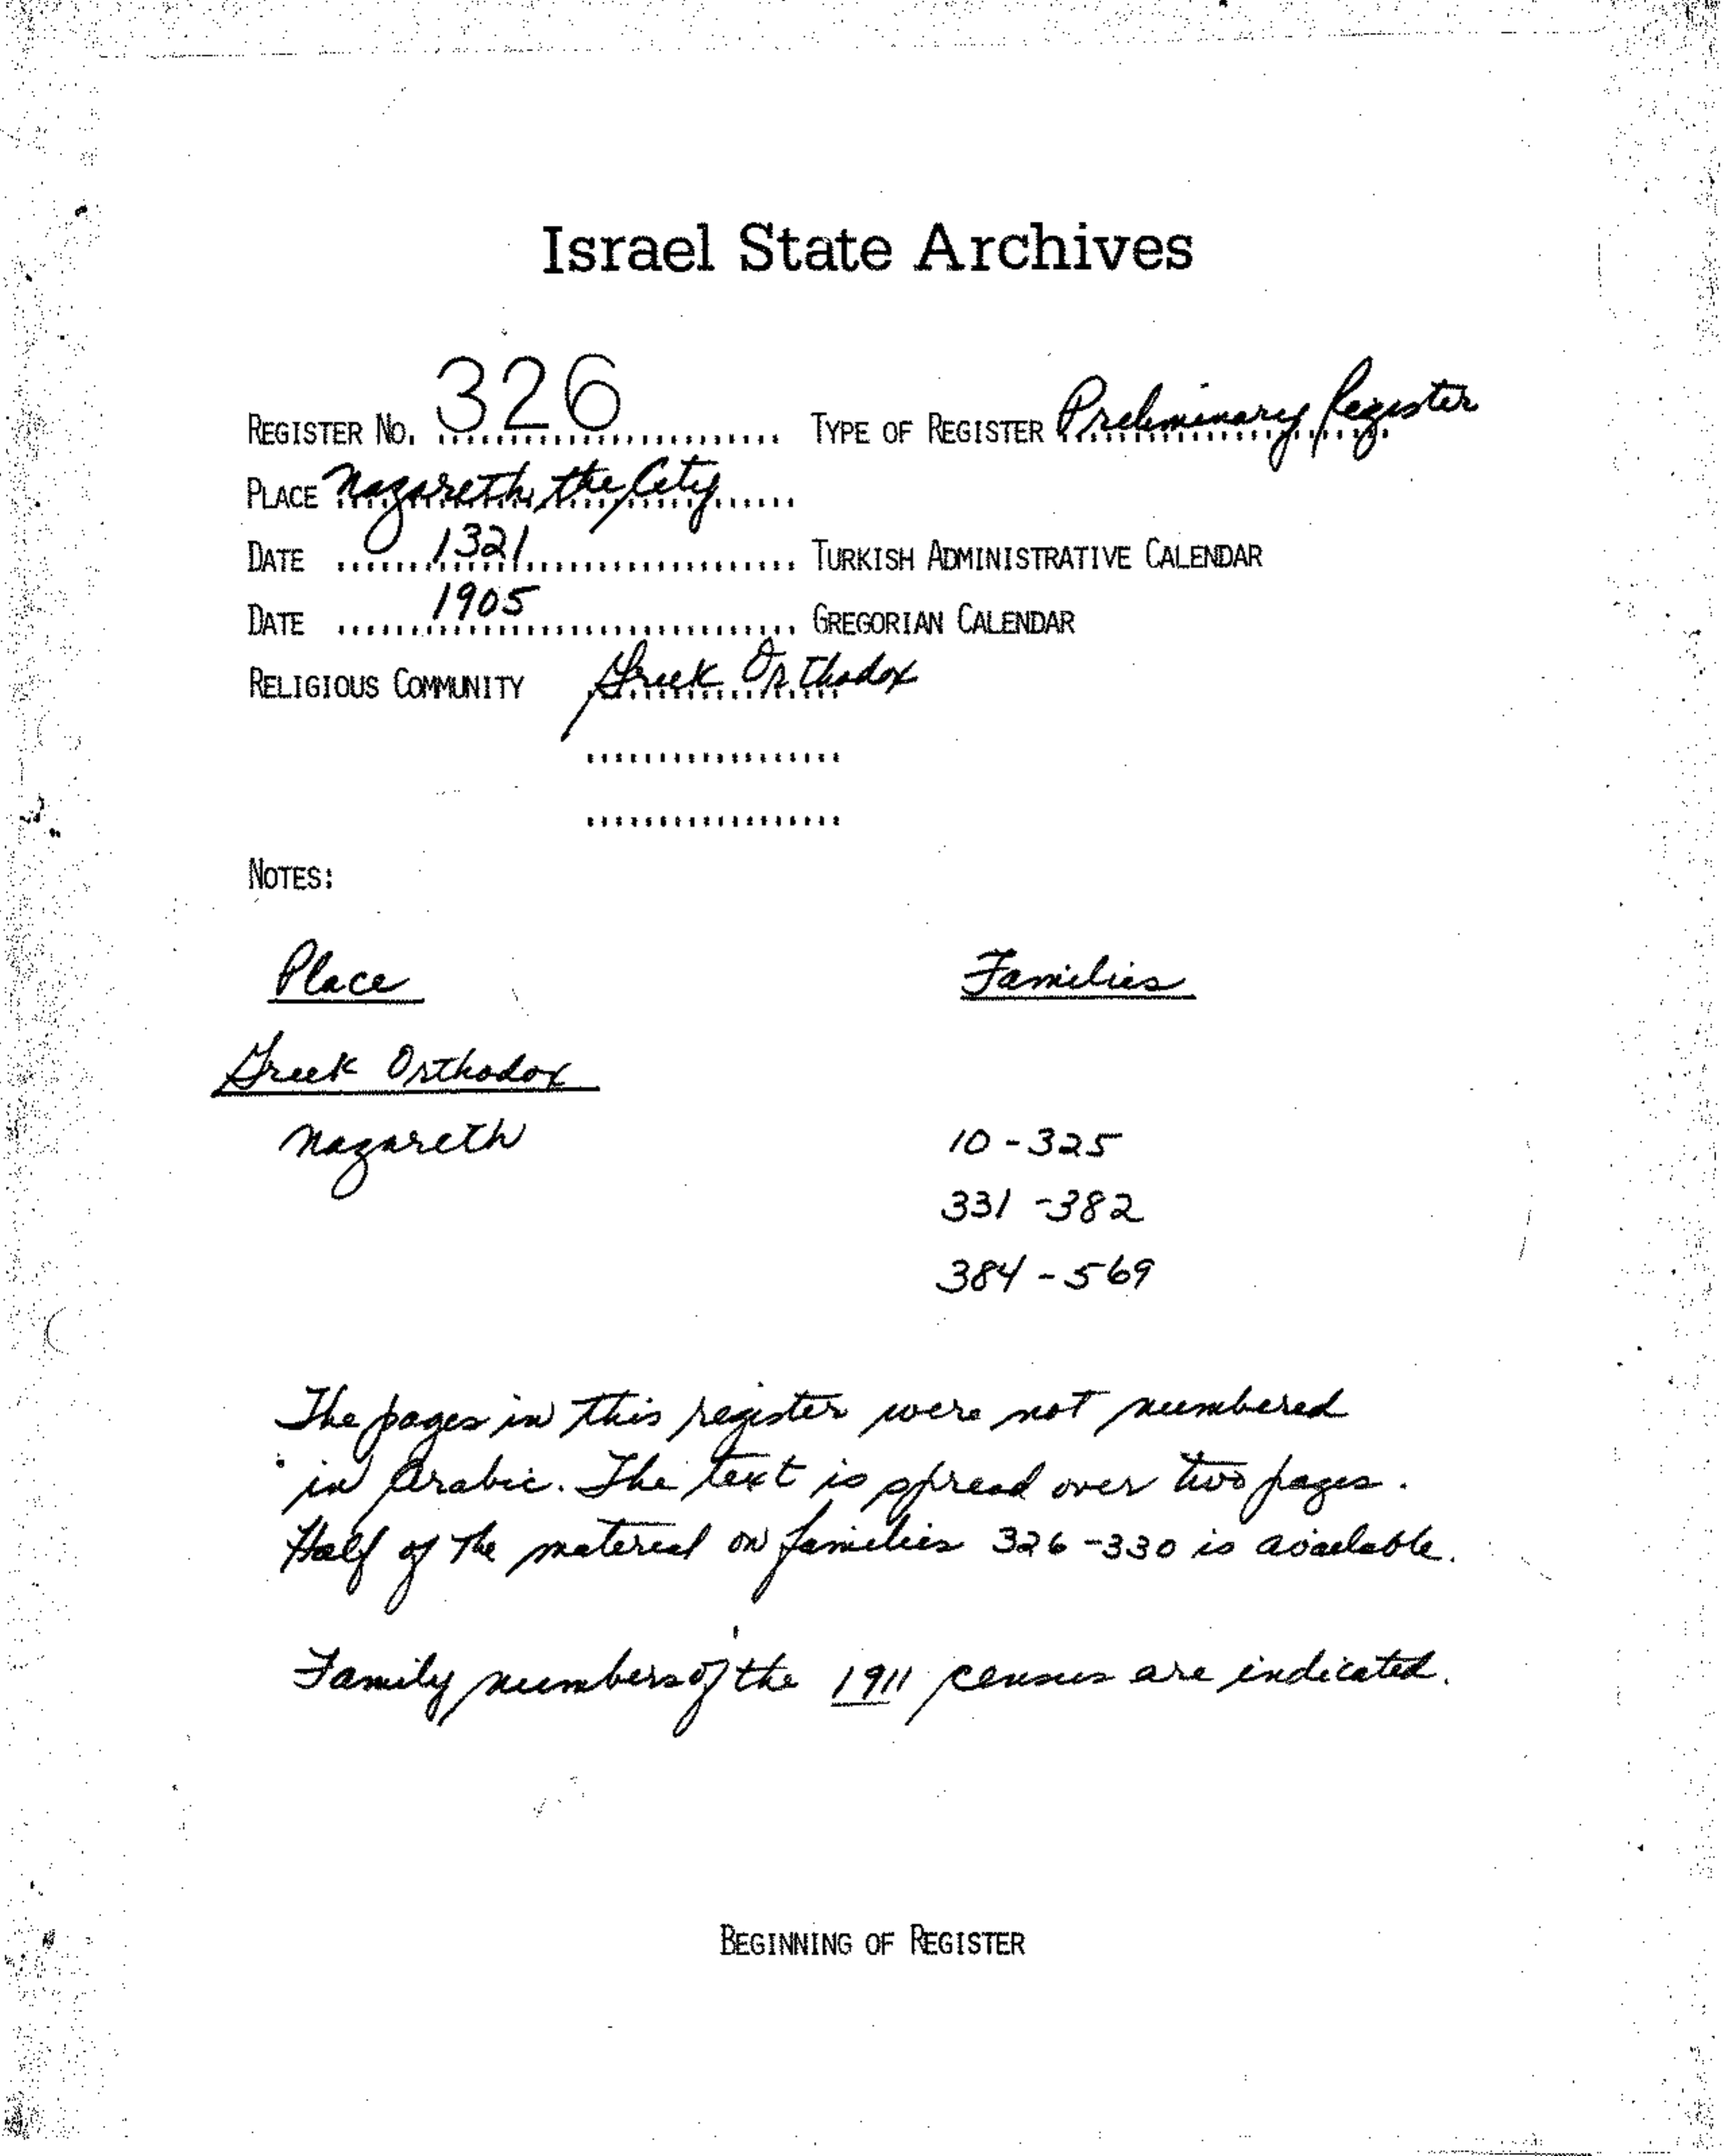 Israel State Archives
REGISTER NO. 326 TYPE OF REGISTER Preliminary Register
PLACE Nazareth, the City
DATE 1321 TURKISH ADMINISTRATIVE CALENDAR
DATE 1905 GREGORIAN CALENDAR
RELIGIOUS COMMUNITY Greek Orthodox
NOTES:
Place Families
Greek Orthodox
Nazareth 10-325
331-382
384-569
The pages in this register were not numbered
in Arabic. The text is spread over two pages.
Half of the material on families 326-330 is available.
Family numbers of the 1911 census are indicated.
BEGINNING OF REGISTER